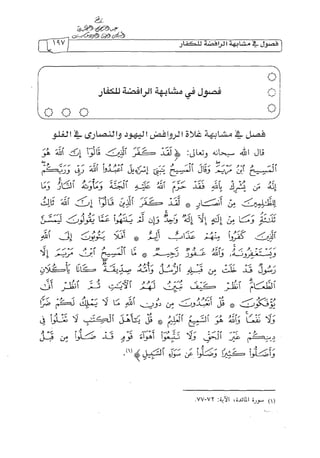 ١٩٧
فصول في مشابهة الرافضة للكفار
فصول في مشابهة الرافضة للكفار
فصل في مشابهة غلاة الروافض اليهود والنصارى في الغلو
قال الله سبحانه وتعالى: ﴿ لقد كفر الذين قالوا إن الله هو
المسيح ابن مريم وقال المسيح يبني إسرءيل اعبدوا الله ربي وربكم
إنه من يشرك بالله فقد حرم الله عليه الجنة ومأوىه النار وما
للظلمين من أنصار * لقد كفر الذين قالوا إن الله ثالث
ثلثة وما من إله إلا إله واحد وإن لم ينتهوا عما يقولون ليمسن
الذين كفروا منهم عذاب أليم * أفلا يتوبون إلى الله
ويستغفرونه والله غفور رحيم * ما المسيح ابن مريم إلا
رسول قد خلت من قبله الرسل وأمه صديقة كانا يأكلان
الطعام انظر كيف نبين لهم الآيت ثم انظر أنى
يؤفكون * قل أتعبدون من دون الله ما لا يملك لكم ضرا
ولا نفعا والله هو السميع العليم * قل يأهل الكتب لا تغلوا في
دينكم غير الحق ولا تتبعوا أهواء قوم قد ضلوا من قبل
وأضلوا كثيرا وضلوا عن سواء السبيل ﴾(١).
(١) سورة المائدة، الآية: ٧٢-٧٧.